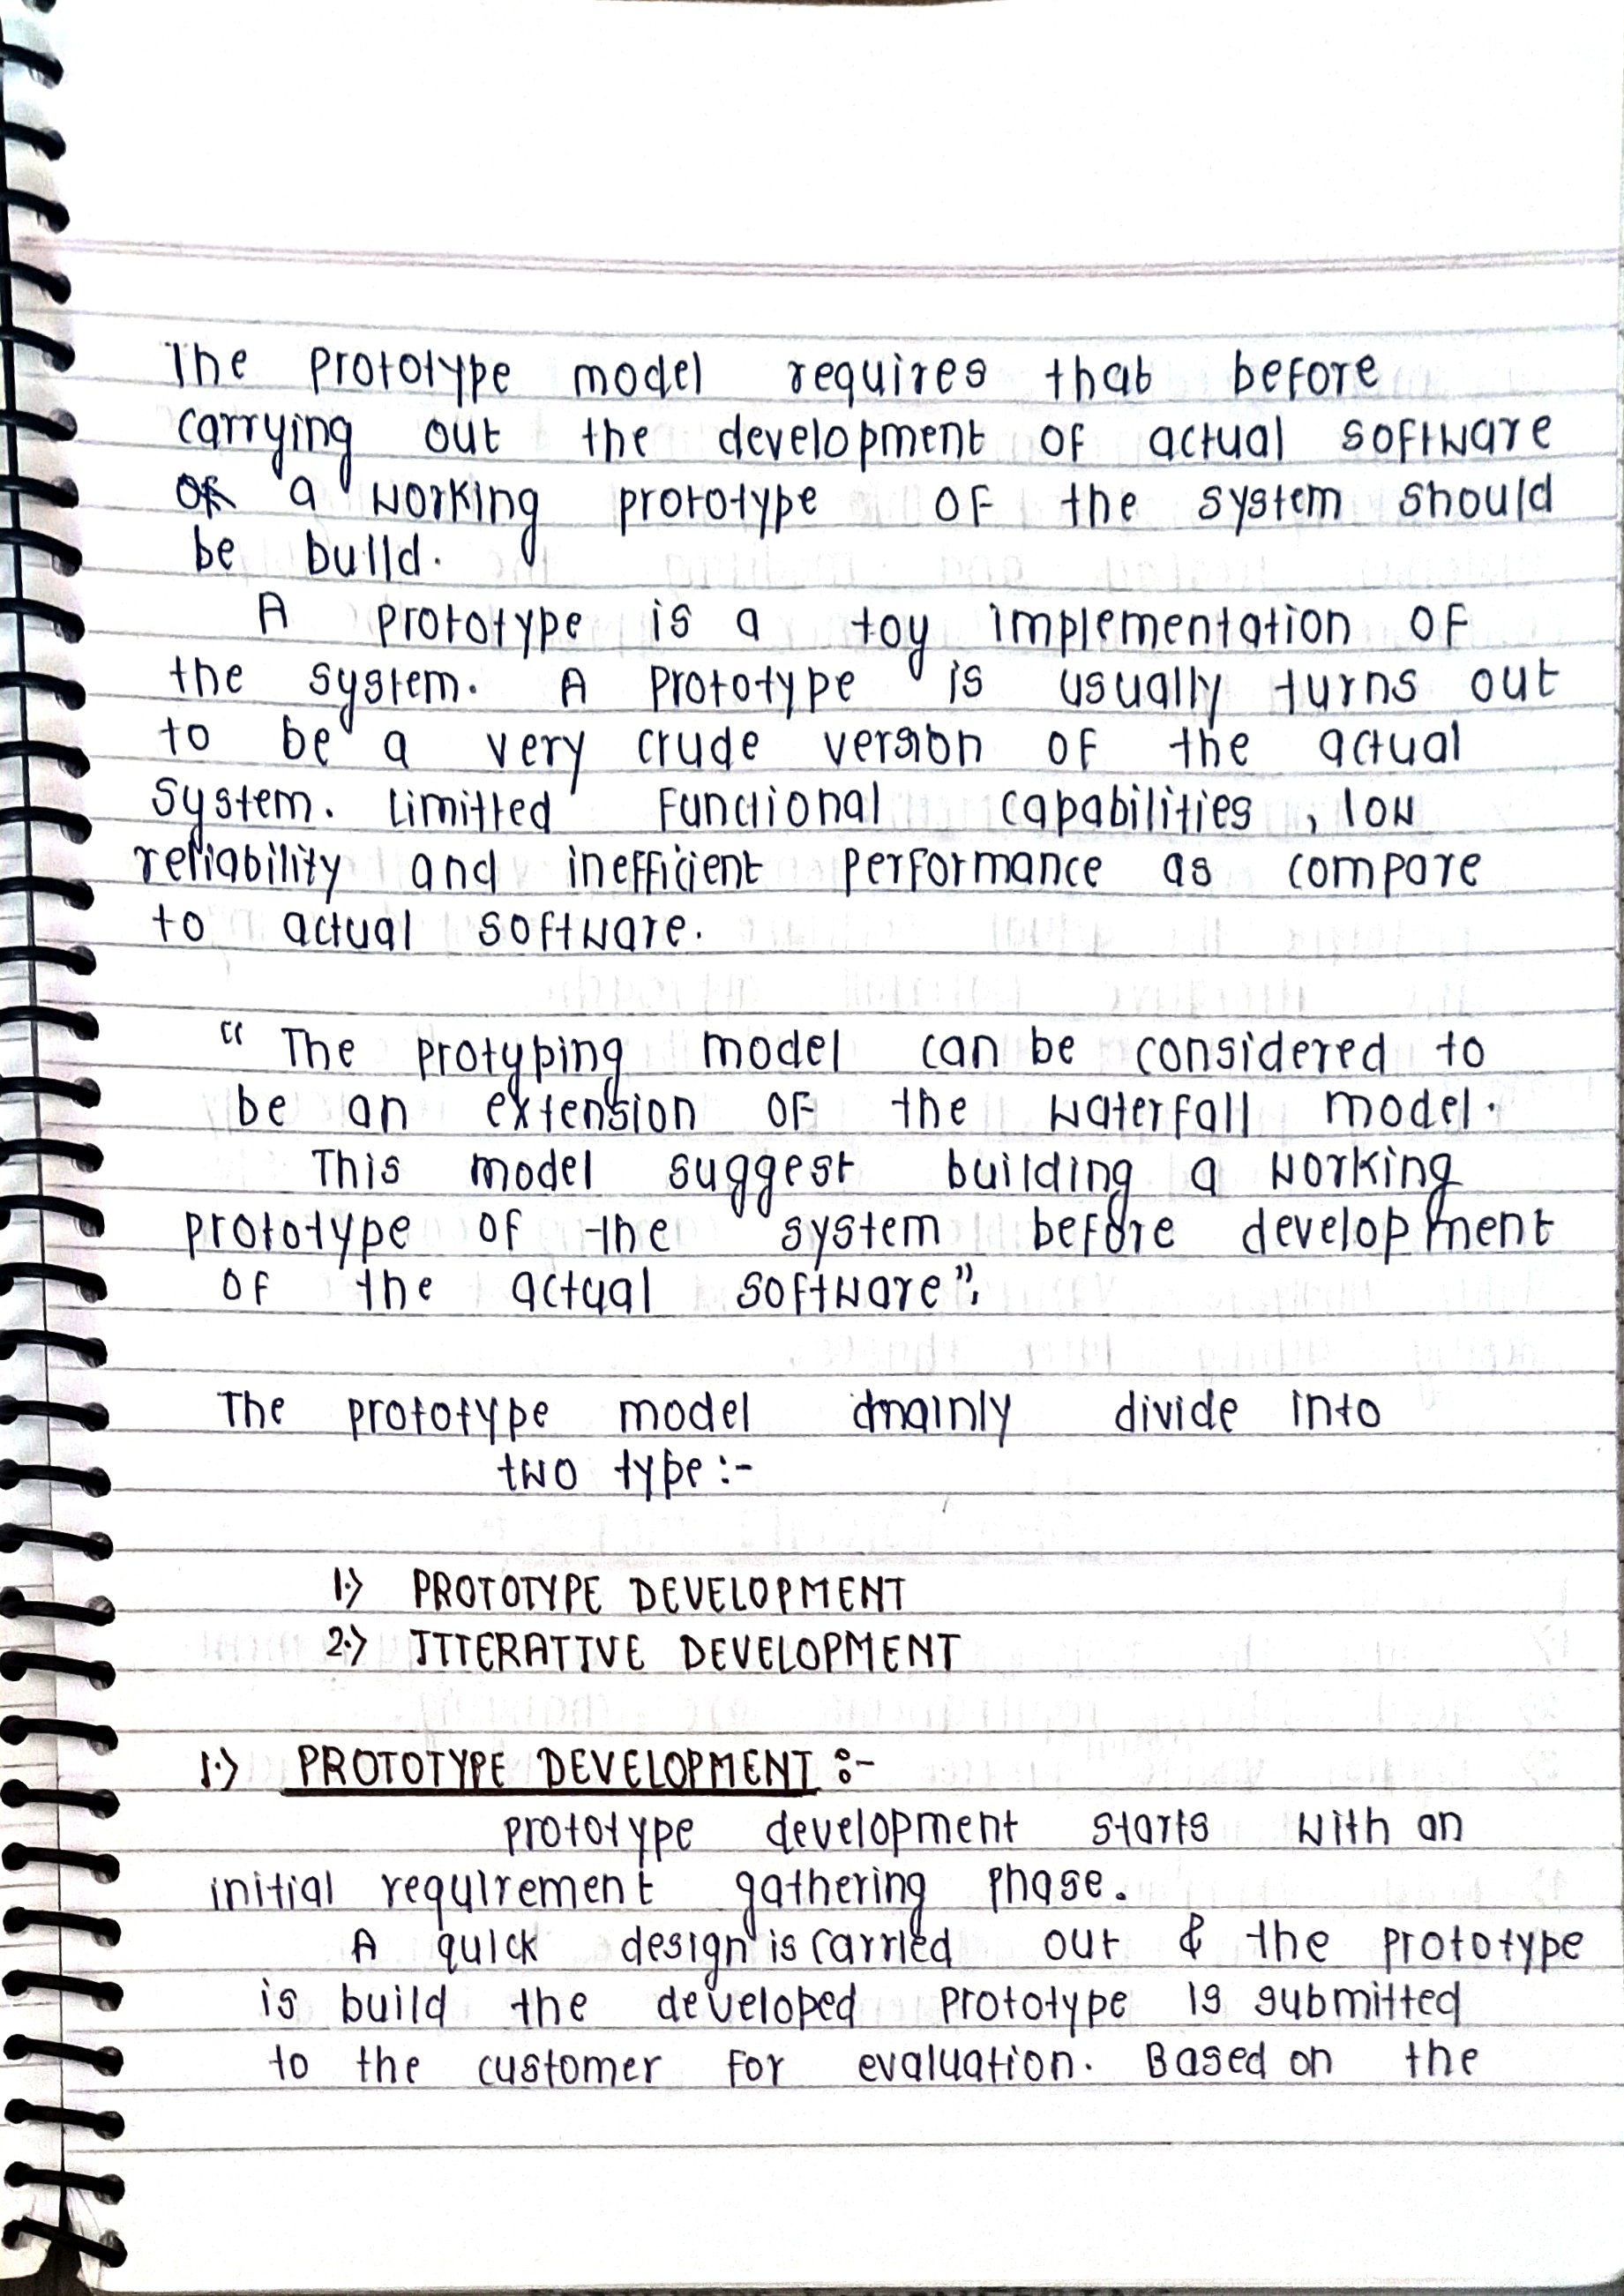 The prototype model requires that before
carrying out the development of actual software
a working prototype of the system should
be build.
A prototype is a toy implementation of
the system. A prototype is usually turns out
to be a very crude version of the actual
system. Limitted functional capabilities, low
reliability and inefficient performance as compare
to actual software.
“ The protyping model can be considered to
be an extension of the waterfall model.
This model suggest building a working
prototype of the system before development
of the actual software”.
The prototype model mainly divide into
two type :-
1.> PROTOTYPE DEVELOPMENT
2.> ITTERATIVE DEVELOPMENT
1.> PROTOTYPE DEVELOPMENT :-
prototype development starts with an
initial requirement gathering phase.
A quick design is carried out & the prototype
is build the developed prototype is submitted
to the customer for evaluation. Based on the